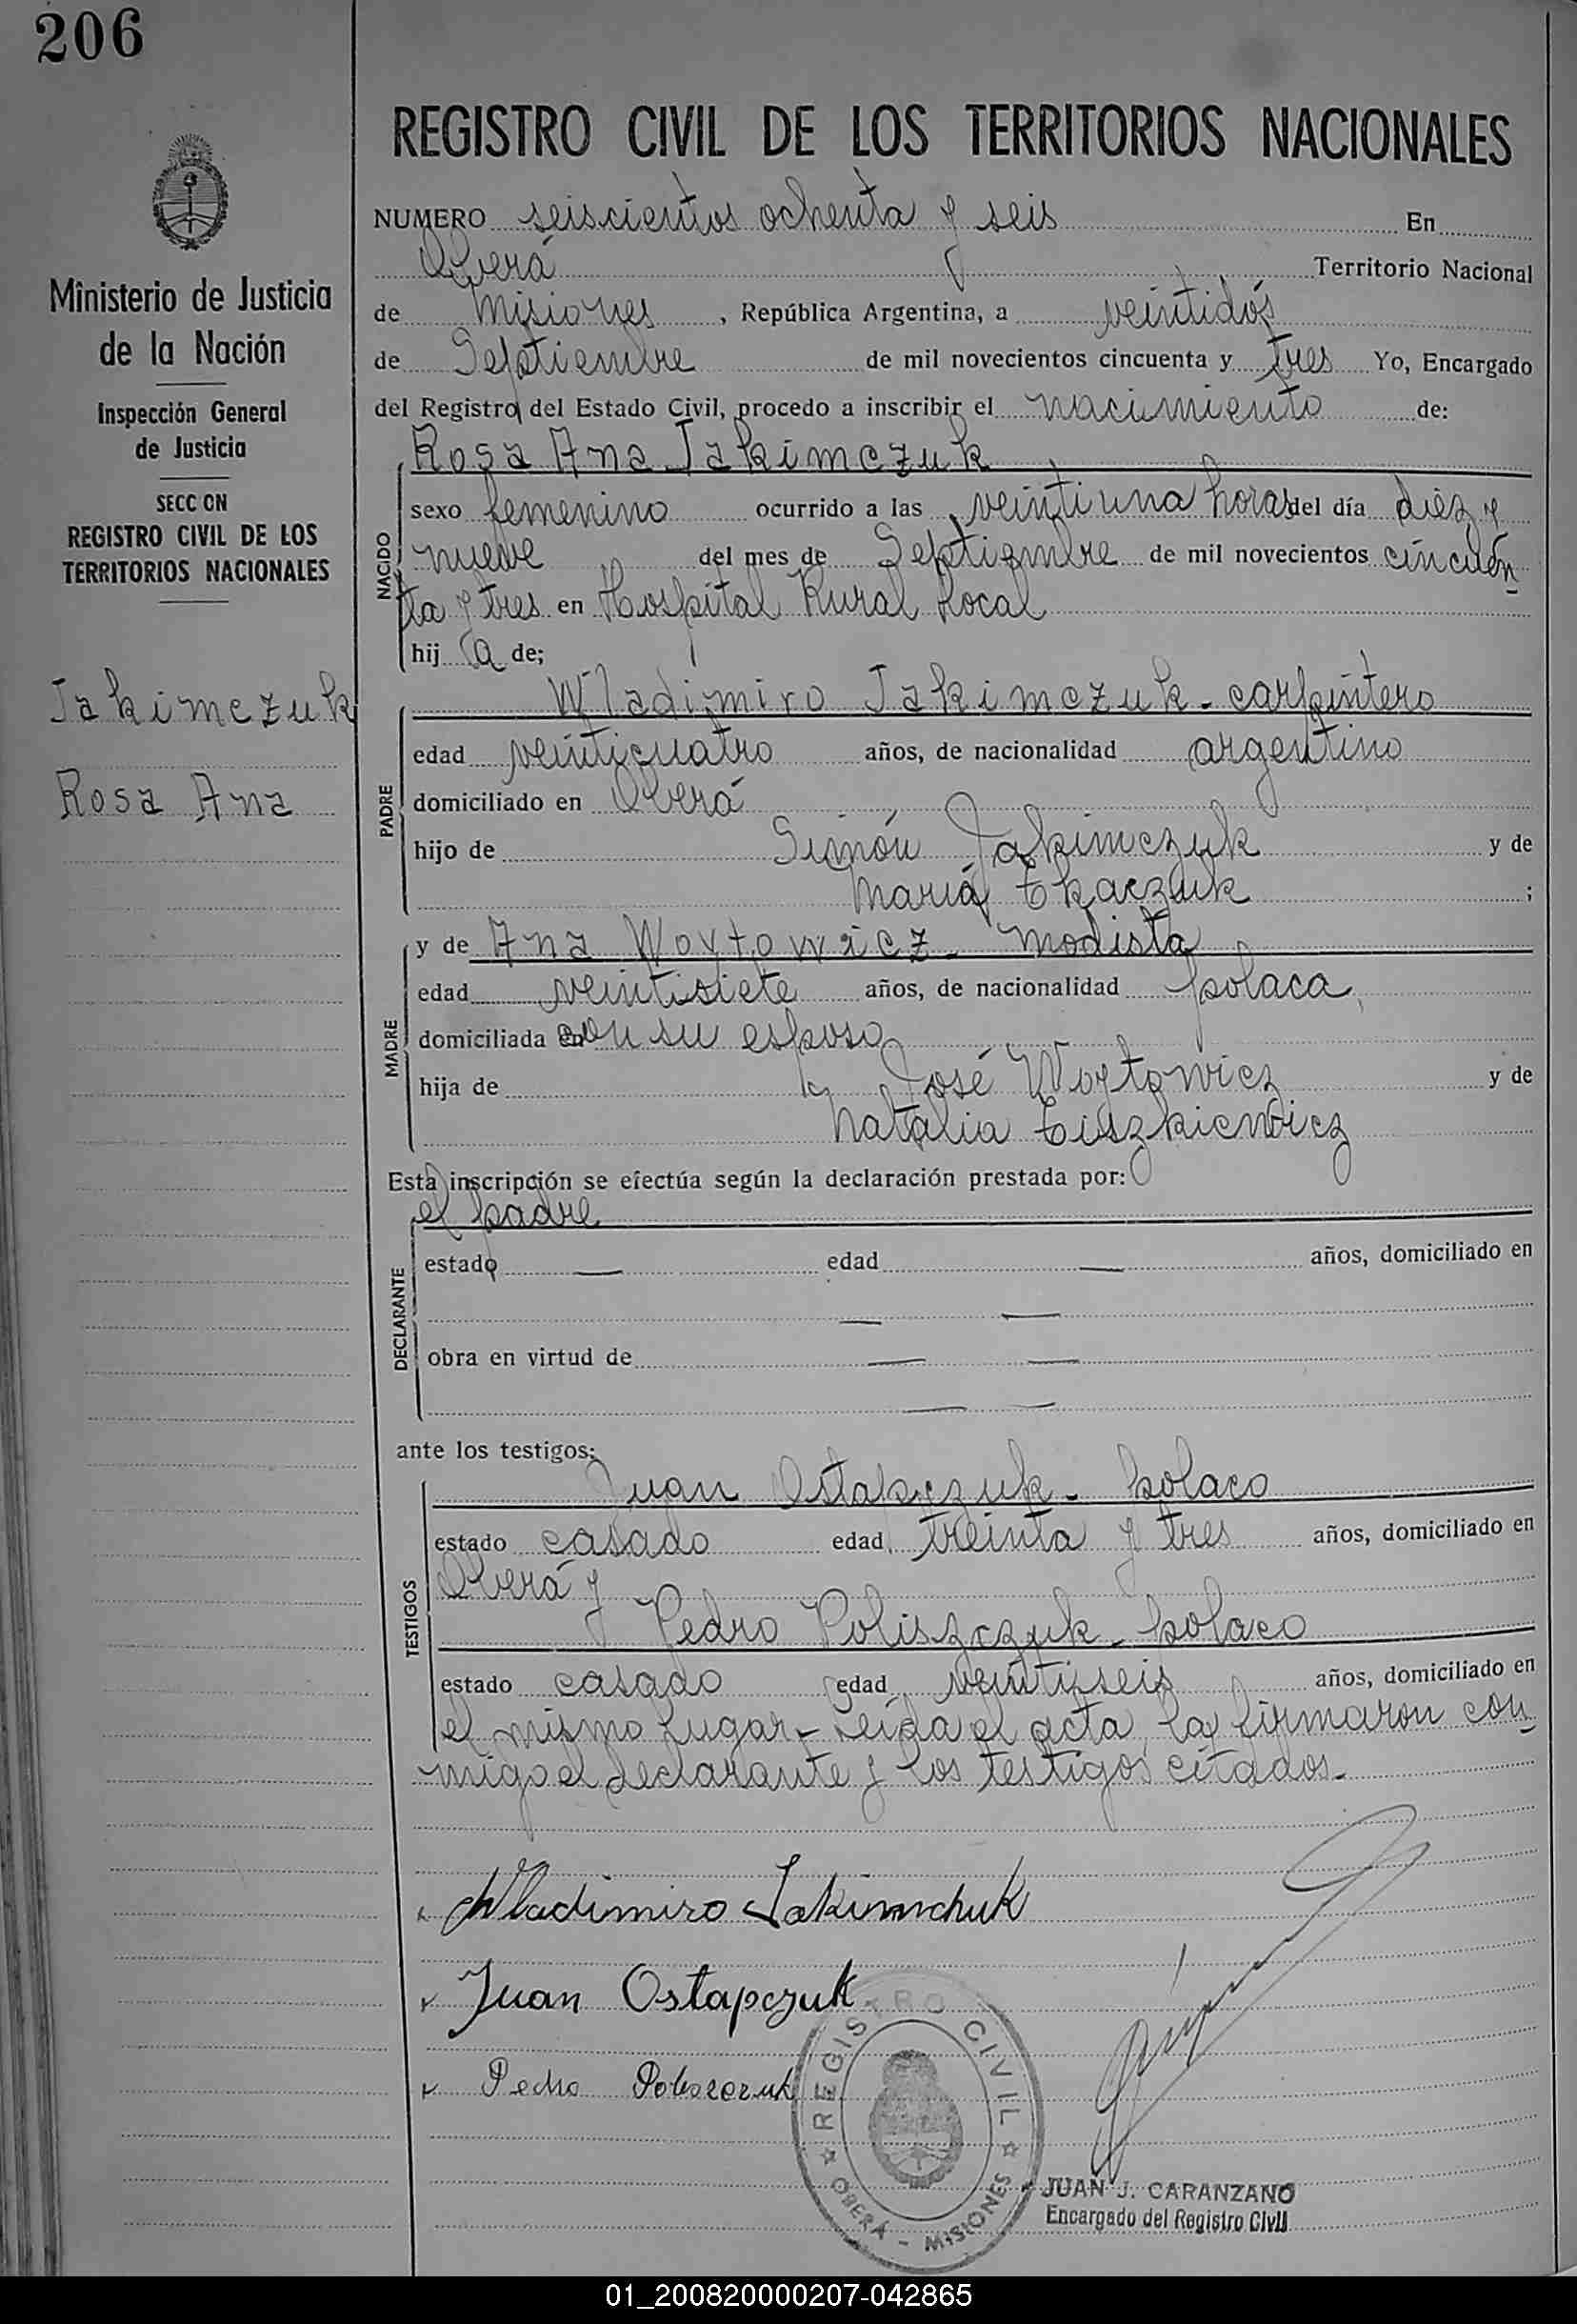 206
REGISTRO CIVIL DE LOS TERRITORIOS NACIONALES
Ministerio de Justicia
de la Nación
Inspección General
de Justicia
SECC ON
REGISTRO CIVIL DE LOS
TERRITORIOS NACIONALES
Jakimczuk
Rosa Ana
NUMERO seiscientos ochenta y seis En
Oberá Territorio Nacional
de Misiones, República Argentina, a veintidós
de Septiembre de mil novecientos cincuenta y tres Yo, Encargado
del Registro del Estado Civil, procedo a inscribir el nacimiento de:
Rosa Ana Jakimczuk
NACIDO
sexo femenino ocurrido a las veintiuna horas del día diez y
nueve del mes de Septiembre de mil novecientos cincuen
ta y tres en Hospital Rural Local
hija de;
Wladimiro Jakimczuk - carpintero
PADRE
edad veinticuatro años, de nacionalidad argentino
domiciliado en Oberá
hijo de Simón Jakimczuk y de
María Tkaczuk ;
y de Ana Woytowicz - modista
MADRE
edad veintisiete años, de nacionalidad polaca,
domiciliada en con su esposo
hija de José Woytowicz y de
Natalia Tiszkiewicz
Esta inscripción se efectúa según la declaración prestada por:
el padre
DECLARANTE
estado — edad — años, domiciliado en
— —
obra en virtud de — —
— —
ante los testigos:
Juan Ostapczuk - polaco
TESTIGOS
estado casado edad treinta y tres años, domiciliado en
Oberá y
Pedro Poliszczuk - polaco
estado casado edad veintiseis años, domiciliado en
el mismo lugar - Leída el acta, la firmaron con
migo el declarante y los testigos citados.
Wladimiro Jakimchuk
Juan Ostapczuk
Pedro Poliszczuk
REGISTRO CIVIL
OBERÁ - MISIONES
JUAN J. CARANZANO
Encargado del Registro Civil
01_200820000207-042865